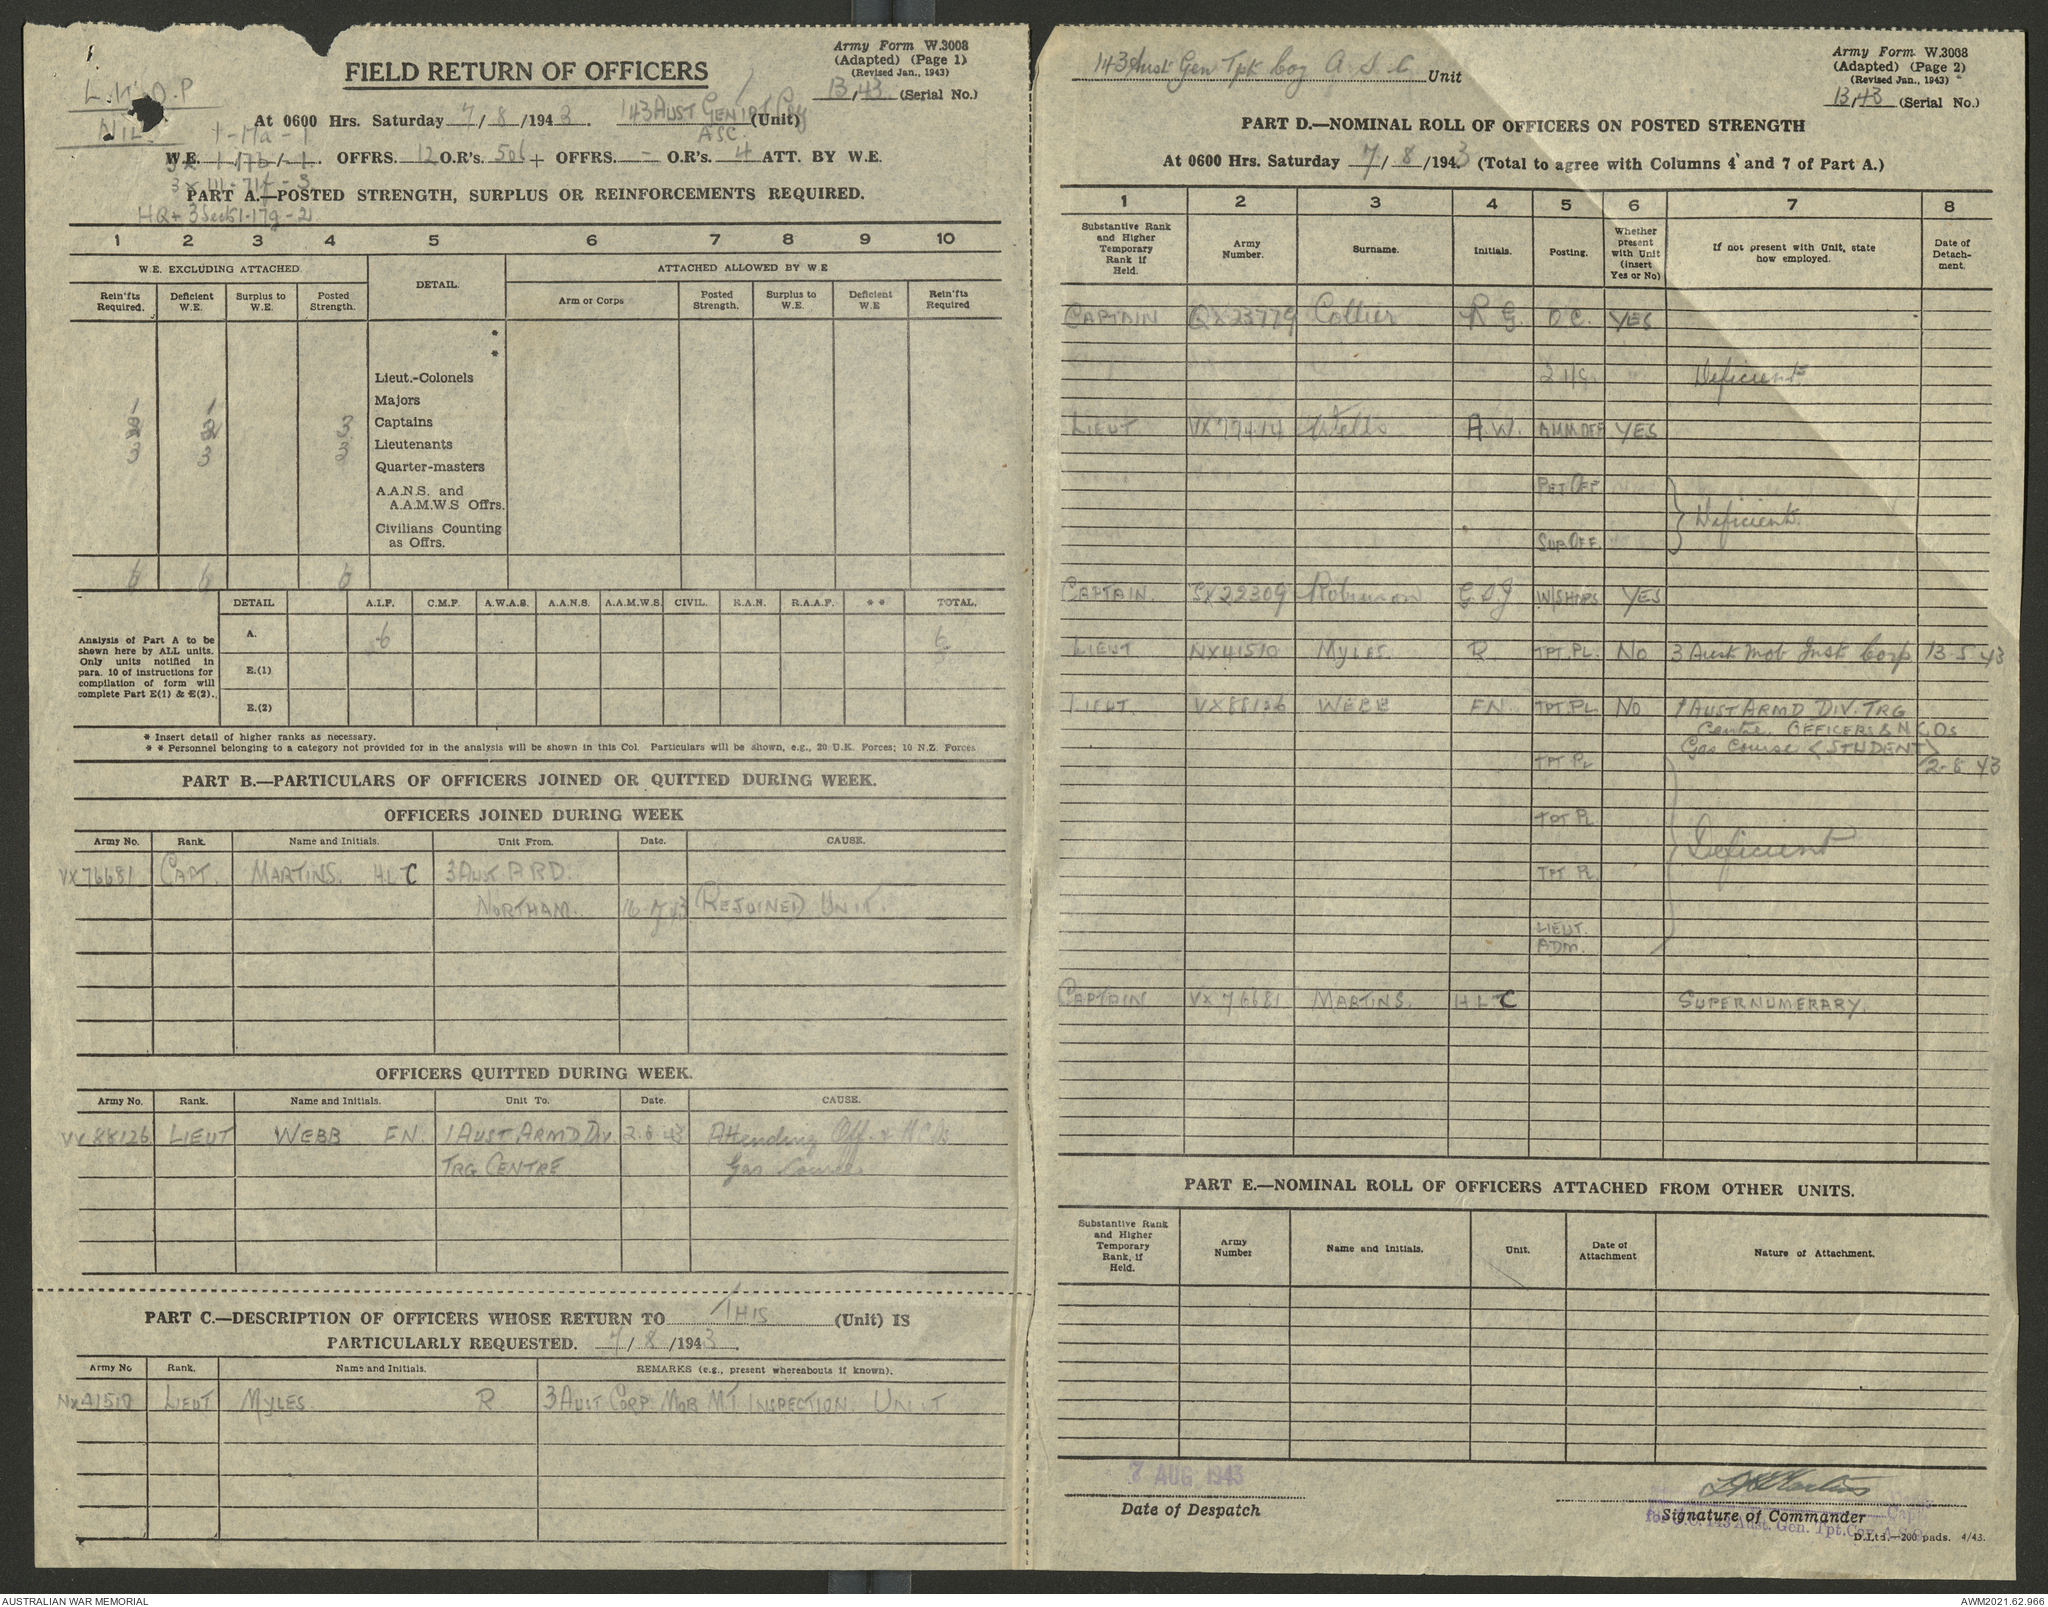 Army Form W.3008
(Adapted) (Page 1)
(Revised Jan., 1943)
13/43 (Serial No.)
FIELD RETURN OF OFFICERS
L.H.Q.P
NIL
At 0600 Hrs. Saturday 7/8/1943. 143 AUST GEN TPT Coy (Unit)
ASC.
1-17a-1
W.E. 1-17b/-1. OFFRS. 12 O.R's. 506 + OFFRS. - O.R's. 4 ATT. BY W.E.
3 x 111-71f-3
PART A.—POSTED STRENGTH, SURPLUS OR REINFORCEMENTS REQUIRED.
HQ + 3 Secs 1-17g-2
1 2 3 4 5 6 7 8 9 10
W.E. EXCLUDING ATTACHED DETAIL. ATTACHED ALLOWED BY W.E
Rein'fts Required. Deficient W.E. Surplus to W.E. Posted Strength. Arm or Corps Posted Strength. Surplus to W.E. Deficient W.E Rein'fts Required
*
*
Lieut.-Colonels
1 1 Majors
2 2 3 Captains
3 3 3 Lieutenants
Quarter-masters
A.A.N.S. and
A.A.M.W.S Offrs.
Civilians Counting
as Offrs.
6 6 6
DETAIL A.I.F. C.M.F. A.W.A.S. A.A.N.S. A.A.M.W.S. CIVIL. R.A.N. R.A.A.F. ** TOTAL.
Analysis of Part A to be
shown here by ALL units.
Only units notified in
para. 10 of instructions for
compilation of form will
complete Part E(1) & E(2).
A. 6 6
E.(1)
E.(2)
* Insert detail of higher ranks as necessary.
** Personnel belonging to a category not provided for in the analysis will be shown in this Col. Particulars will be shown, e.g., 20 U.K. Forces; 10 N.Z. Forces
PART B.—PARTICULARS OF OFFICERS JOINED OR QUITTED DURING WEEK.
OFFICERS JOINED DURING WEEK
Army No. Rank. Name and Initials. Unit From. Date. CAUSE.
VX76681 CAPT. MARTINS. H.L.C 3 AUST ARD.
NORTHAM. 16-7-43 REJOINED UNIT.
OFFICERS QUITTED DURING WEEK.
Army No. Rank. Name and Initials. Unit To. Date. CAUSE.
VX88126 LIEUT WEBB FN. 1 AUST ARMD DIV 2-8-43 Attending Off. & NCOs
TRG CENTRE Gas Course
PART C.—DESCRIPTION OF OFFICERS WHOSE RETURN TO THIS (Unit) IS
PARTICULARLY REQUESTED. 7/8/1943.
Army No Rank. Name and Initials. REMARKS (e.g., present whereabouts if known).
NX41510 LIEUT MYLES R 3 AUST CORP MOB M.T INSPECTION UNIT
143 Aust Gen Tpt Coy A S C Unit
Army Form W.3008
(Adapted) (Page 2)
(Revised Jan., 1943)
13/43 (Serial No.)
PART D.—NOMINAL ROLL OF OFFICERS ON POSTED STRENGTH
At 0600 Hrs. Saturday 7/8/1943 (Total to agree with Columns 4 and 7 of Part A.)
1 2 3 4 5 6 7 8
Substantive Rank and Higher Temporary Rank if Held. Army Number. Surname. Initials. Posting. Whether present with Unit (insert Yes or No) If not present with Unit, state how employed. Date of Detach-ment.
CAPTAIN QX23779 Collier R G. O C. YES
2 i/c. Deficient
LIEUT VX77414 Wells A.W. AMM OFF YES
PET OFF
Deficient
SUP OFF.
CAPTAIN. SX22309 Robinson G.S.J W/SHOPS YES
LIEUT NX41510 MYLES R. TPT. PL. NO 3 Aust Mob Inst Corp 13-5-43
LIEUT. VX88126 WEBB FN. TPT. PL NO 1 AUST ARMD DIV. TRG
Centre. OFFICERS & N.C.Os
Gas course (STUDENT)
TPT PL 2-8-43
TPT PL
Deficient
TPT PL
LIEUT.
ADM.
CAPTAIN VX76681 MARTINS. H.L.C SUPERNUMERARY.
PART E.—NOMINAL ROLL OF OFFICERS ATTACHED FROM OTHER UNITS.
Substantive Rank and Higher Temporary Rank, if Held. Army Number Name and Initials. Unit. Date of Attachment Nature of Attachment.
7 AUG 1943
Date of Despatch
Capt
Signature of Commander
for O.C. 143 Aust. Gen. Tpt. Coy. A.A.S.C.
D.Ltd.—200 pads. 4/43.
AUSTRALIAN WAR MEMORIAL
AWM2021.62.966